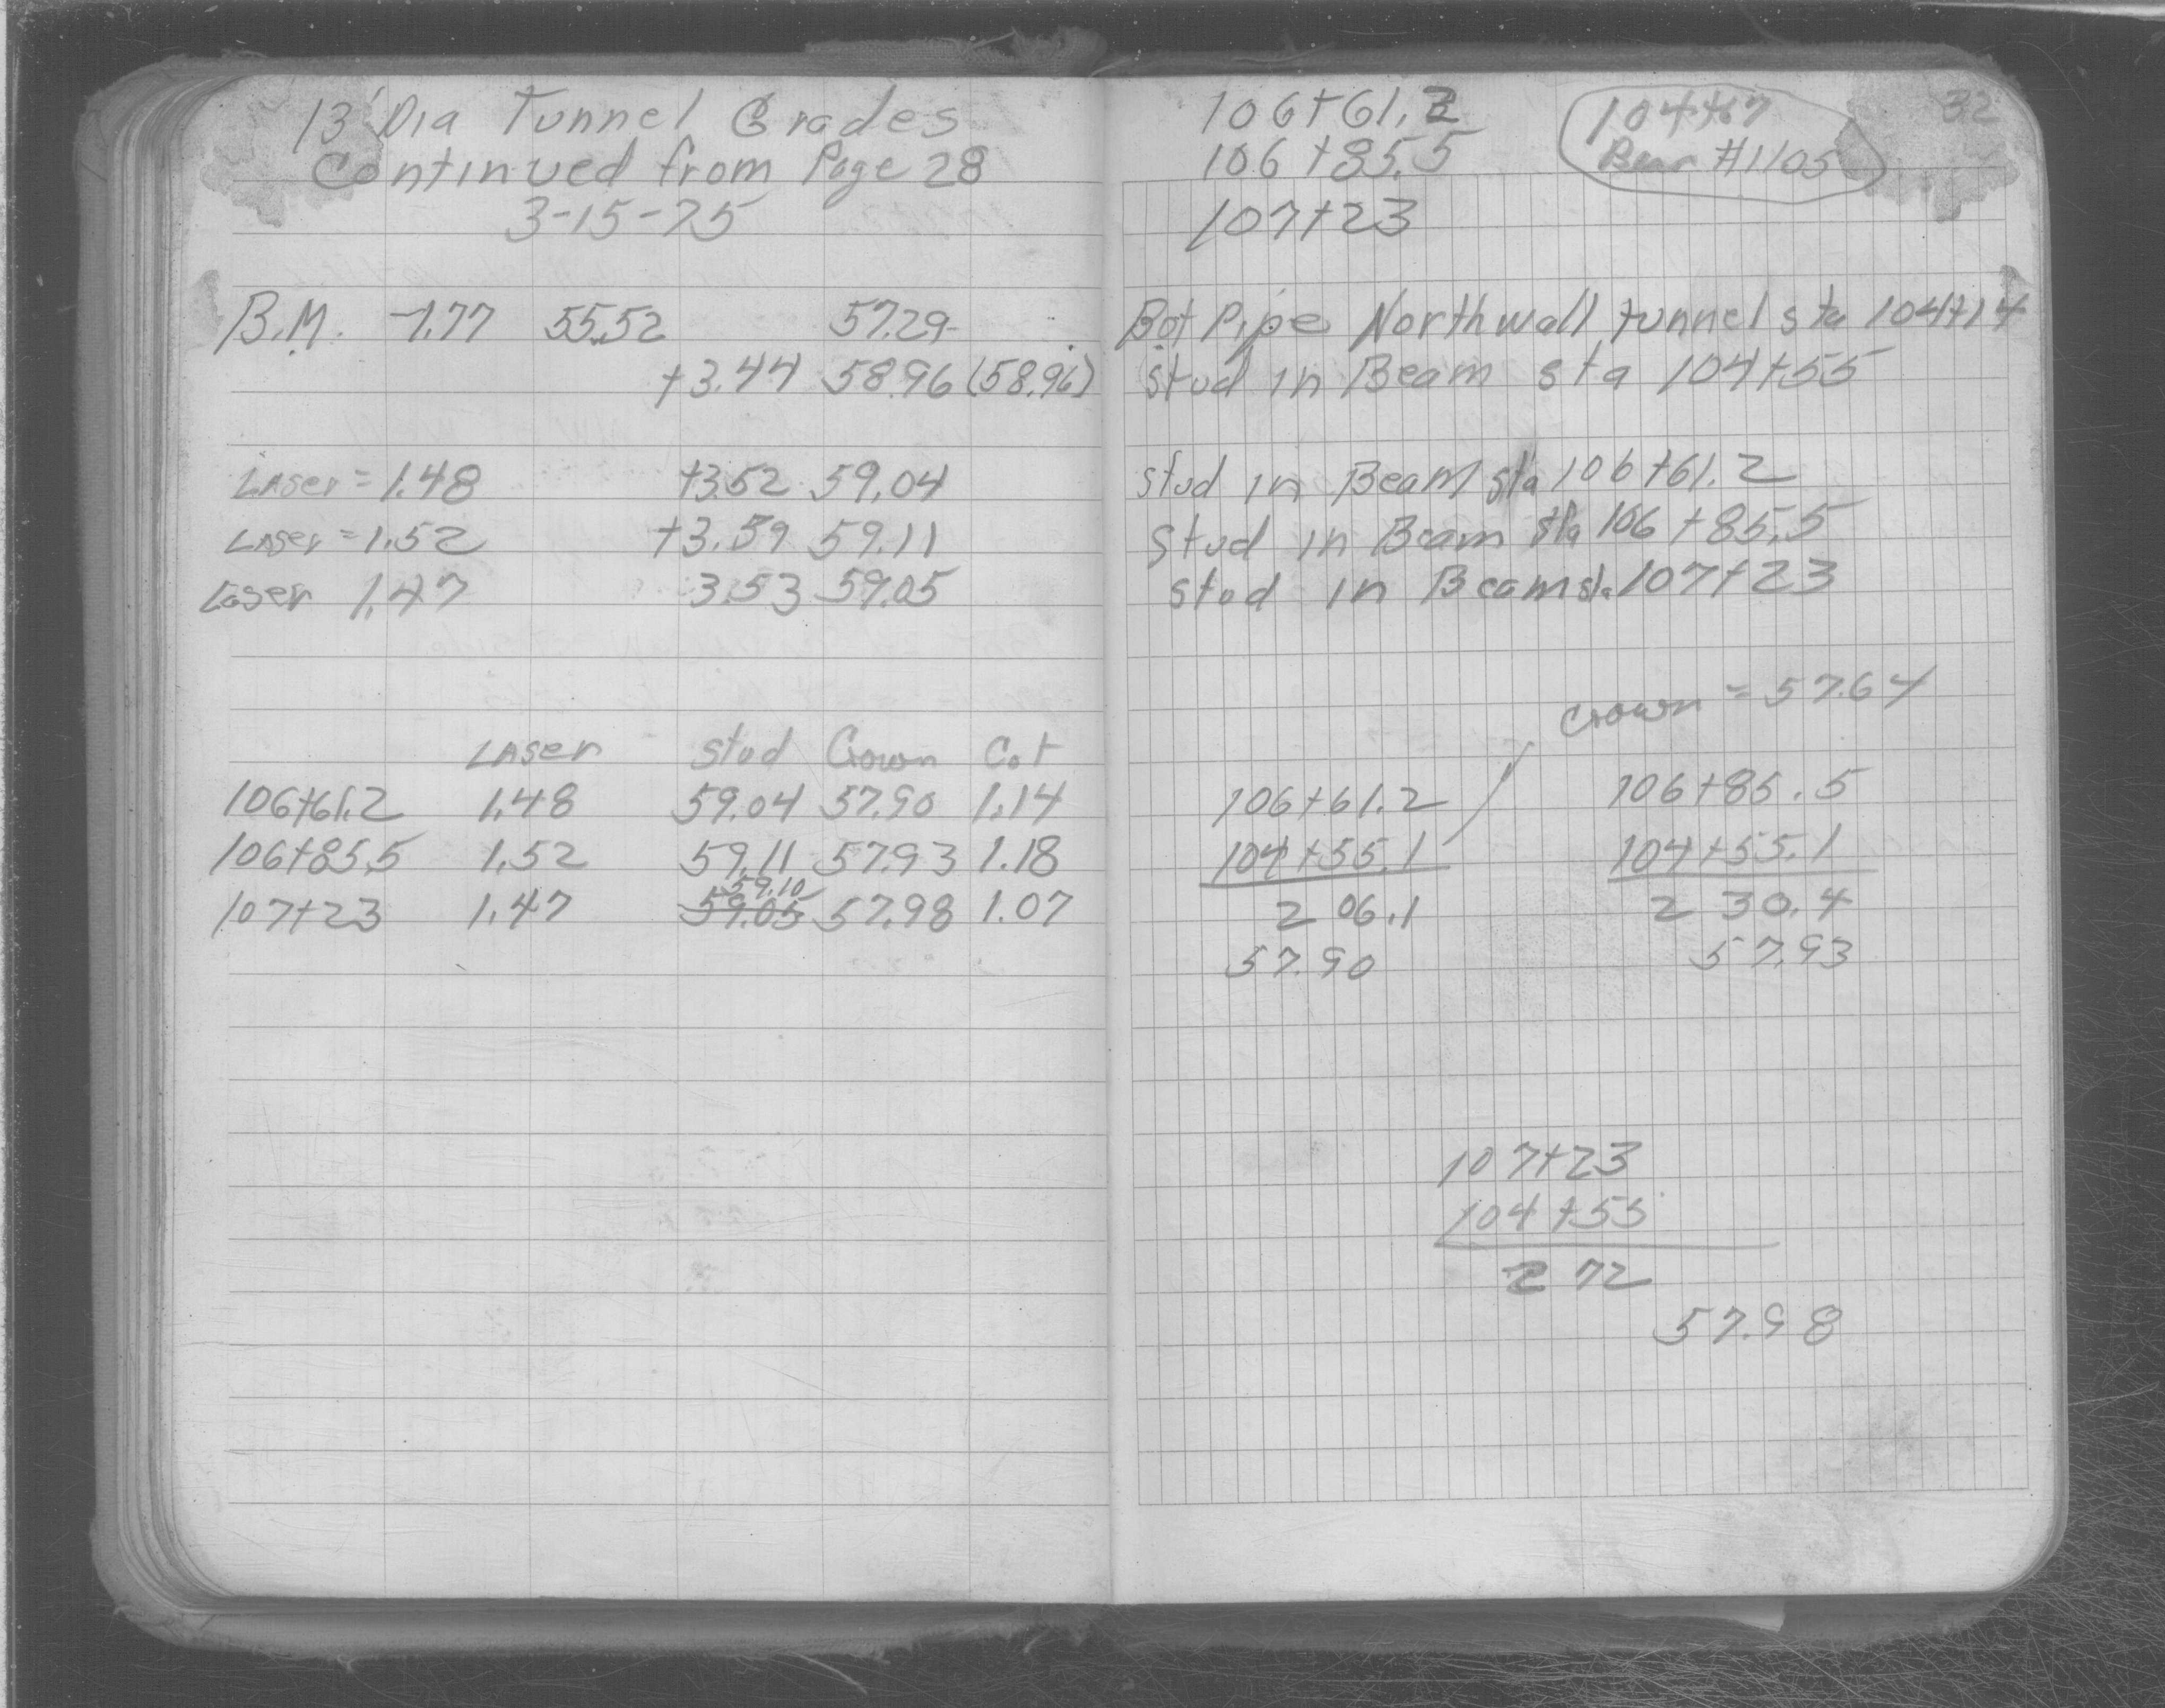 13' Dia Tunnel Grades
Continued from Page 28
3-15-75
B.M. -1.77 55.52 57.29
+3.44 58.96 (58.96)
Laser = 1.48 +3.52 59.04
Laser = 1.52 +3.59 59.11
Laser 1.47 3.53 59.05
Laser Stud Crown Cut
106+61.2 1.48 59.04 57.90 1.14
106+85.5 1.52 59.11 57.93 1.18
59.10
107+23 1.47 59.05 57.98 1.07
32
106+61.2
106+85.5
107+23
104+67
#1105
Bot Pipe Northwall tunnel sta 104+14
Stud in Beam sta 104+55
Stud in Beam sta 106+61.2
Stud in Beam sta 106+85.5
Stud in Beam sta 107+23
Crown = 57.64
106+61.2
104+55.1
2 06.1
57.90
106+85.5
104+55.1
2 30.4
57.93
107+23
104+55
2 72
57.98